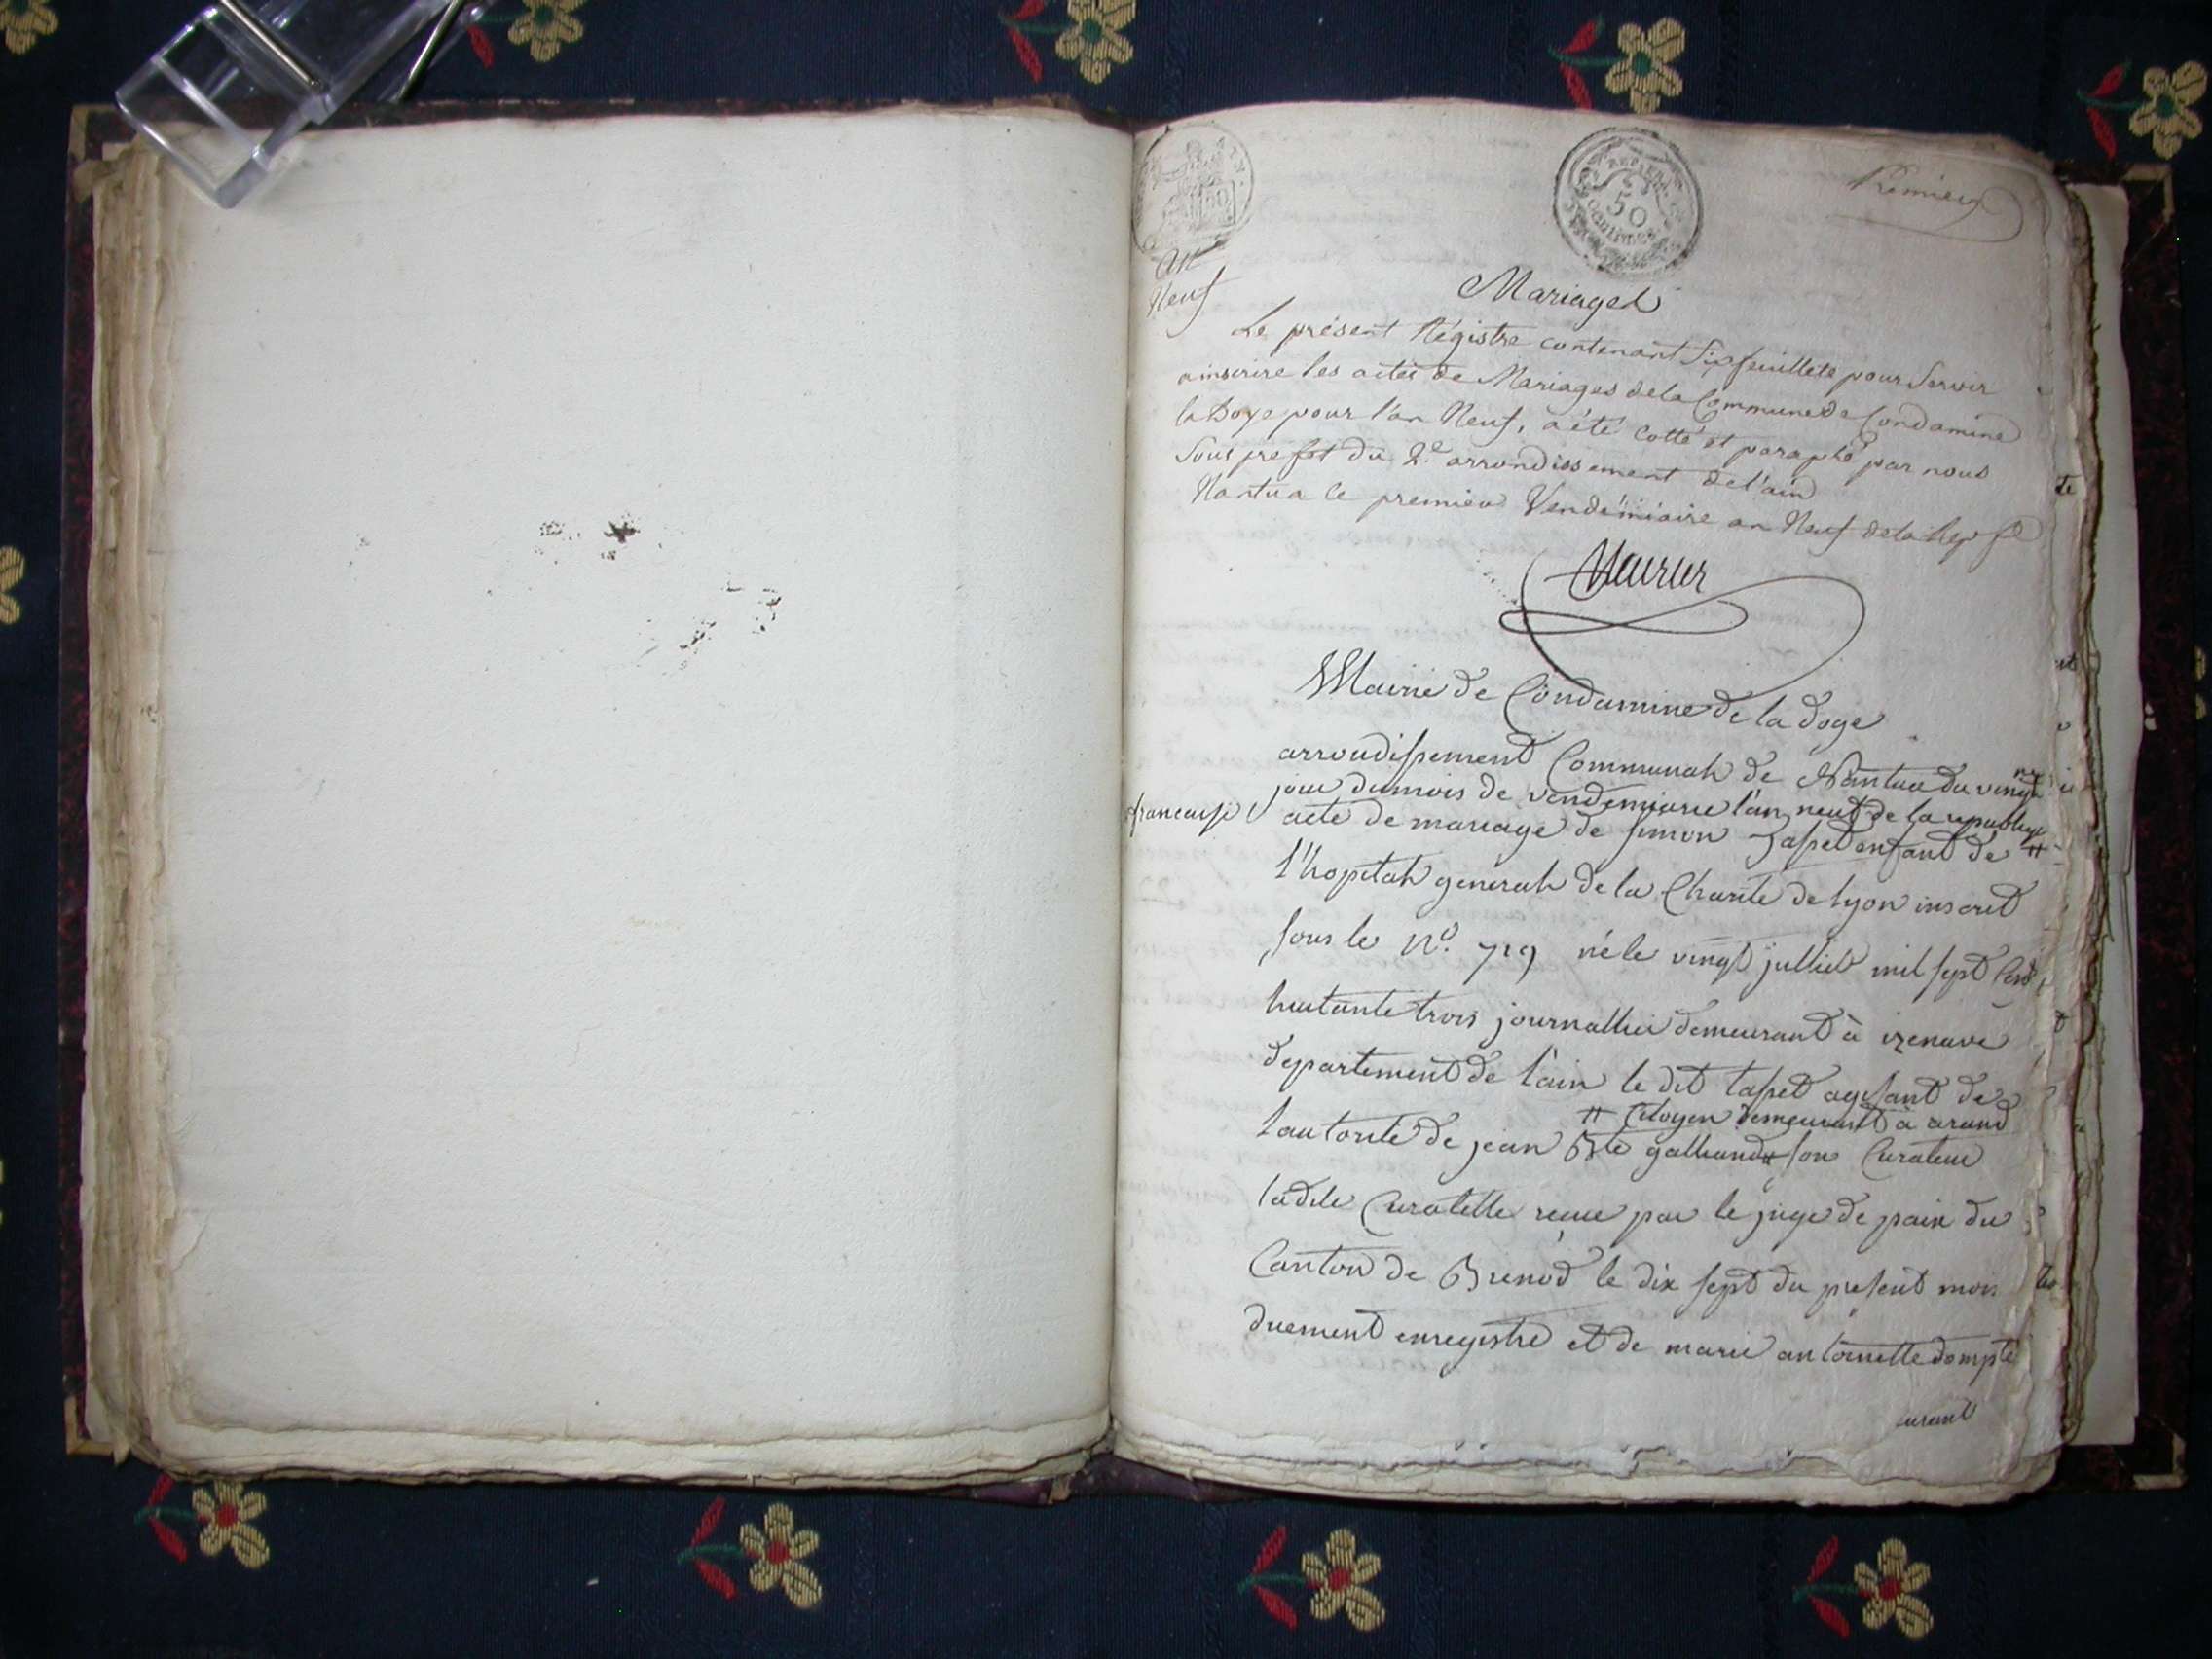 Premier
50
CENTIMES
an
Neuf
Mariages
Le présent Régistre contenant Six feuillets pour Servir
a inscrire les actes de Mariages de la Commune de Condamine
la Doye pour l'an Neuf, a été Cotté et paraphé par nous
Sous prefet du 2.e arrondissement de l'ain
Nantua le premier Vendémiaire an Neuf de la Rep fse
Mairie de Condamine de la doye
arrondissement Communal de Nantua du vingt
jour du mois de vendemiaire l'an neuf de la republique
francaise acte de mariage de simon tasset enfant de
l'hopital general de la Charite de lyon inscrit
sous le N.o 719 né le vingt julliet mil sept Cent
huitante trois journallier demeurant à izenave
departement de l'ain le dit tasset agissant de
# Citoyen demeurant à arand
lautorite de jean Bte galliand # son Curateur
ladite Curatelle recue par le juge de paix du
Canton de Brenod le dix sept du present mois
duement enregistre et de marie antoinette dompte